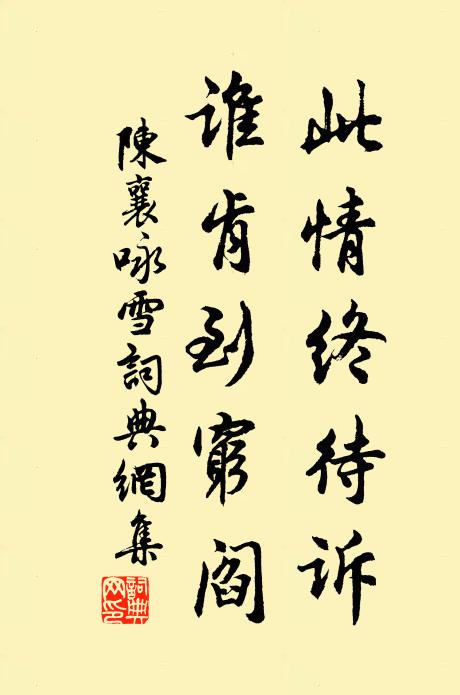 此情終待訴
誰肯到窮閻
陳襄咏雪詞典網集
詞典网印